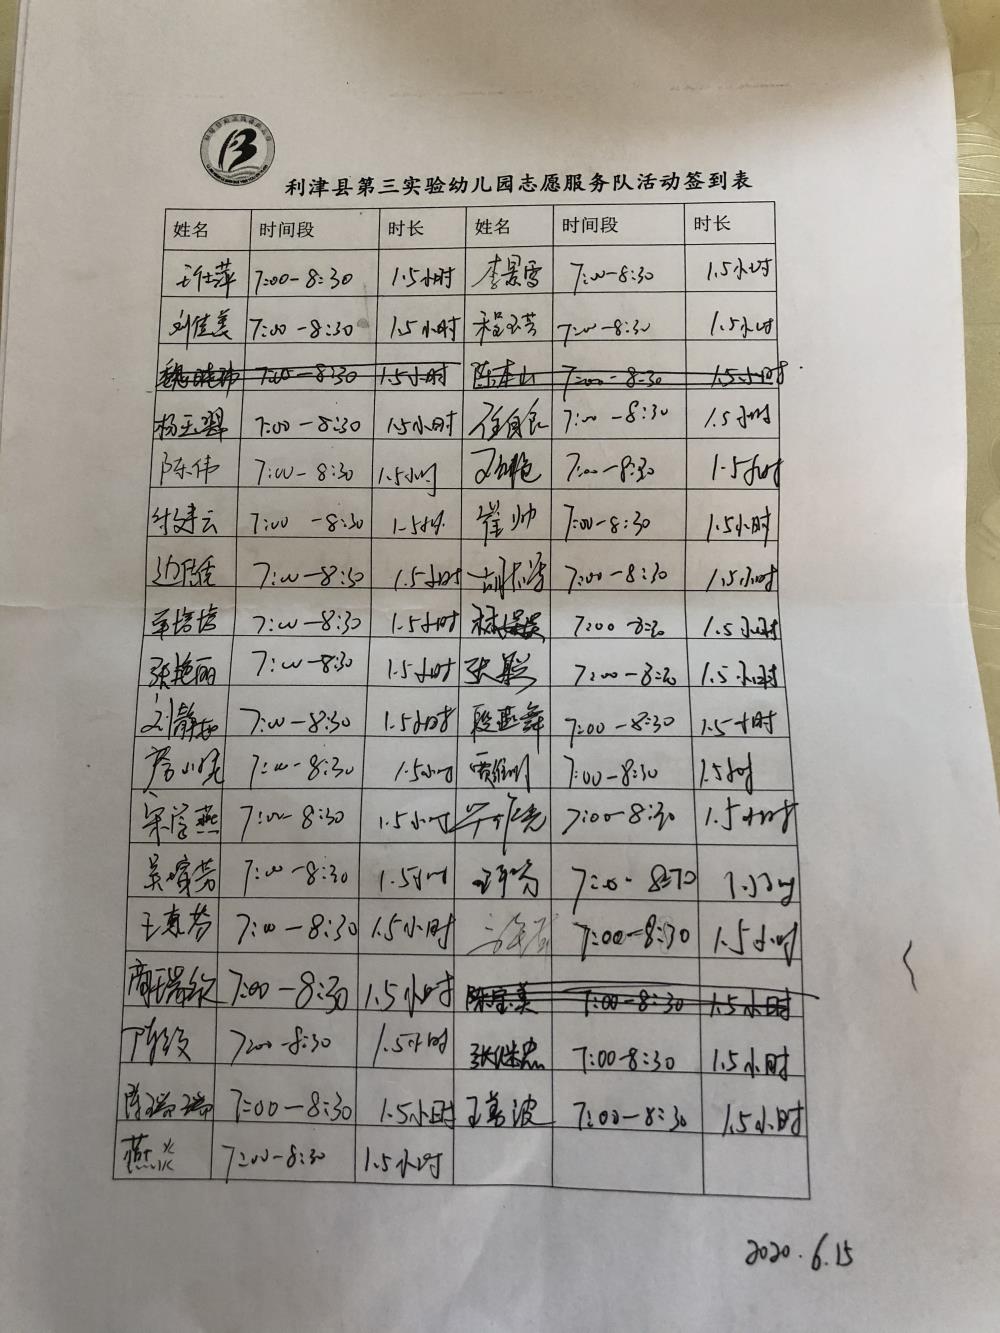 利津县第三实验幼儿园志愿服务队活动签到表
姓名 时间段 时长 姓名 时间段 时长
王仕萍 7:00-8:30 1.5小时 李景雪 7:00-8:30 1.5小时
刘佳美 7:00-8:30 1.5小时 程玉芸 7:00-8:30 1.5小时
魏晓玮 7:00-8:30 1.5小时 陈春山 7:00-8:30 1.5小时
杨玉翠 7:00-8:30 1.5小时 7:00-8:30 1.5小时
陈伟 7:00-8:30 1.5小时 7:00-8:30 1.5小时
付建云 7:00-8:30 1.5小时 崔帅 7:00-8:30 1.5小时
7:00-8:30 1.5小时 7:00-8:30 1.5小时
单培培 7:00-8:30 1.5小时 7:00 8:30 1.5小时
张艳丽 7:00-8:30 1.5小时 张聪 7:00-8:30 1.5小时
刘静 7:00-8:30 1.5小时 段燕舞 7:00-8:30 1.5小时
7:00-8:30 1.5小时 7:00-8:30 1.5小时
宋学燕 7:00-8:30 1.5小时 7:00-8:30 1.5小时
吴 芳 7:00-8:30 1.5小时 7:00-8:30 1.5小时
王 芬 7:00-8:30 1.5小时 7:00-8:30 1.5小时
商瑞 7:00-8:30 1.5小时 陈宝美 7:00-8:30 1.5小时
7:00-8:30 1.5小时 张继忠 7:00-8:30 1.5小时
陈瑞瑞 7:00-8:30 1.5小时 王 波 7:00-8:30 1.5小时
7:00-8:30 1.5小时
2020.6.15